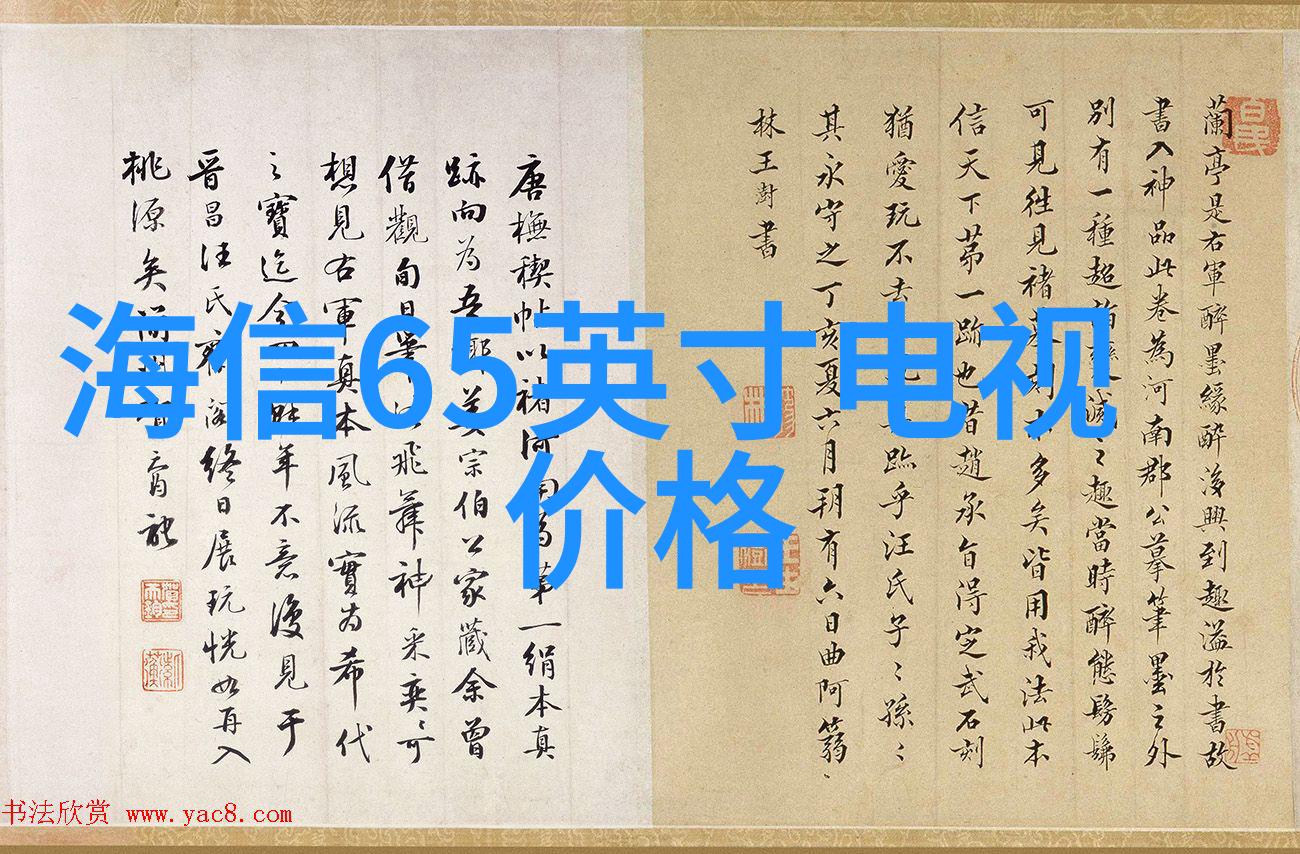 海信65英寸电视
价格
蘭亭是右軍醉墨緣醉後興到趣溢於書故
書入神品此卷為河南郡公摹筆墨之外
別有一種超 趣當時醉態髣髴
可見往見褚摹刻本多矣皆用我法此本
信天下第一跡也昔趙承旨得定武石刻
猶愛玩不去 跡乎汪氏子〻孫〻
其永守之丁亥夏六月朔有六日曲阿篛
林王澍書
唐橅禊帖以褚河 第一絹本真
跡向為吾 宗伯公家藏余曾
借觀旬日 飛舞神采奕〻可
想見右軍真本風流實為希代
之寶迄今 年不意復見于
晉昌汪氏 閣終日展玩恍如再入
桃源矣
书法欣赏 www.yac8.com